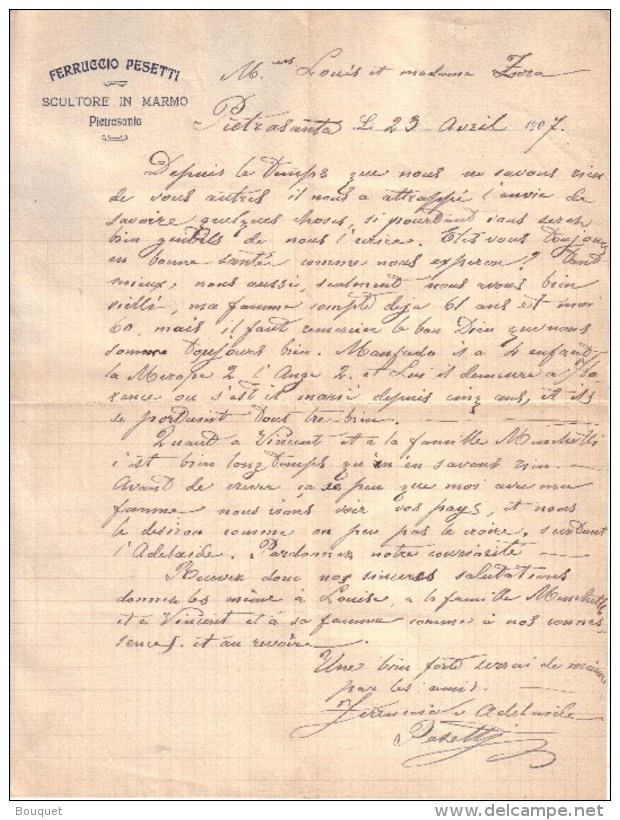 FERRUCCIO PESETTI
SCULTORE IN MARMO
Pietrasanta
M.urs Louis et madame Zora
Pietrasanta L 23 Avril 1907.
Depuis le temps que nous ne savons rien
de vous autres il nous a attrappé l'envie de
savoire quelques choses, si pourtant vous serez
bien gentils de nous l'ecrire. Etes vous toujours
en bonne santée comme nous esperon? tant
mieux, nous aussi, sealment nous avons bien
vielli, ma famme compte deja 61 ans est moi
60, mais il faut remercier le bon Dieu que nous
somme toujours bien. Manfredo is a 4 enfants
la Merope 2 l'Ange 2. et Lui il demeure a Flo
rence ou s'est il marié depuis cinq ans, et ils
se portaient tous tre bien.
Quand a Vincent et à la famille Muschetti
c'est bien long temps qu'n'en savons rien.
Avant de crever ça se peu que moi avec ma
famme nous irons voir vos pays, et nous
le desiron comme on peu pas le croire, surtout
l'Adelaide. Pardonnez notre couriosité
Recevez donc nos sinceres salutations
donnez les même à Louise, a la famille Muschetti
et à Vincent et à sa famme comme à nos connes
sences. et au revoire
Une bien forte serrai de main
par les amis.
Ferruccio e Adelaide
Pesetti
Bouquet
delcampe.net